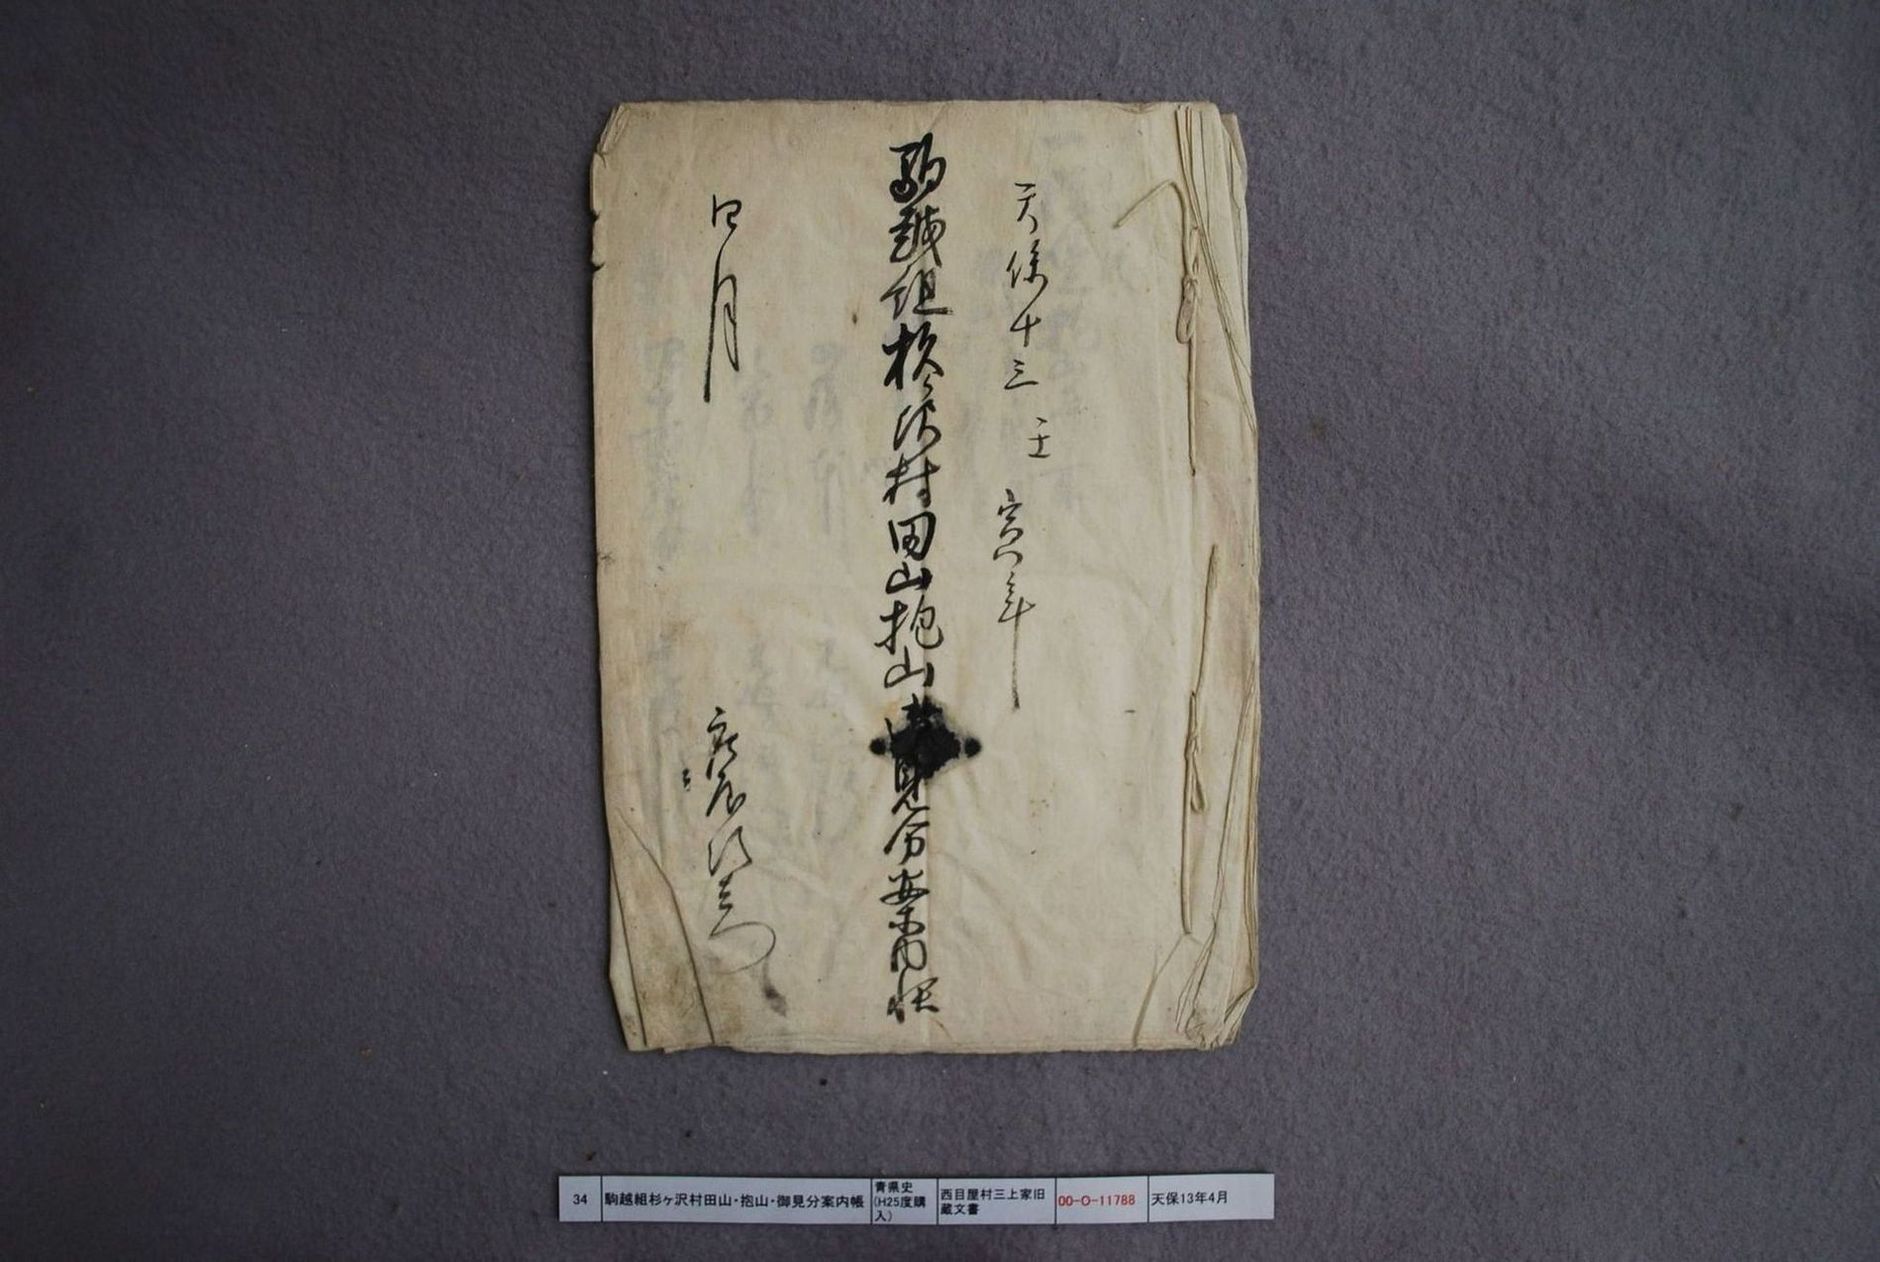 天保十三壬寅年
駒越組杉ヶ沢村田山抱山御見分案内帳
四月
34
駒越組杉ヶ沢村田山・抱山・御見分案内帳
青県史
(H25度購
入)
西目屋村三上家旧
蔵文書
00-O-11788
天保13年4月